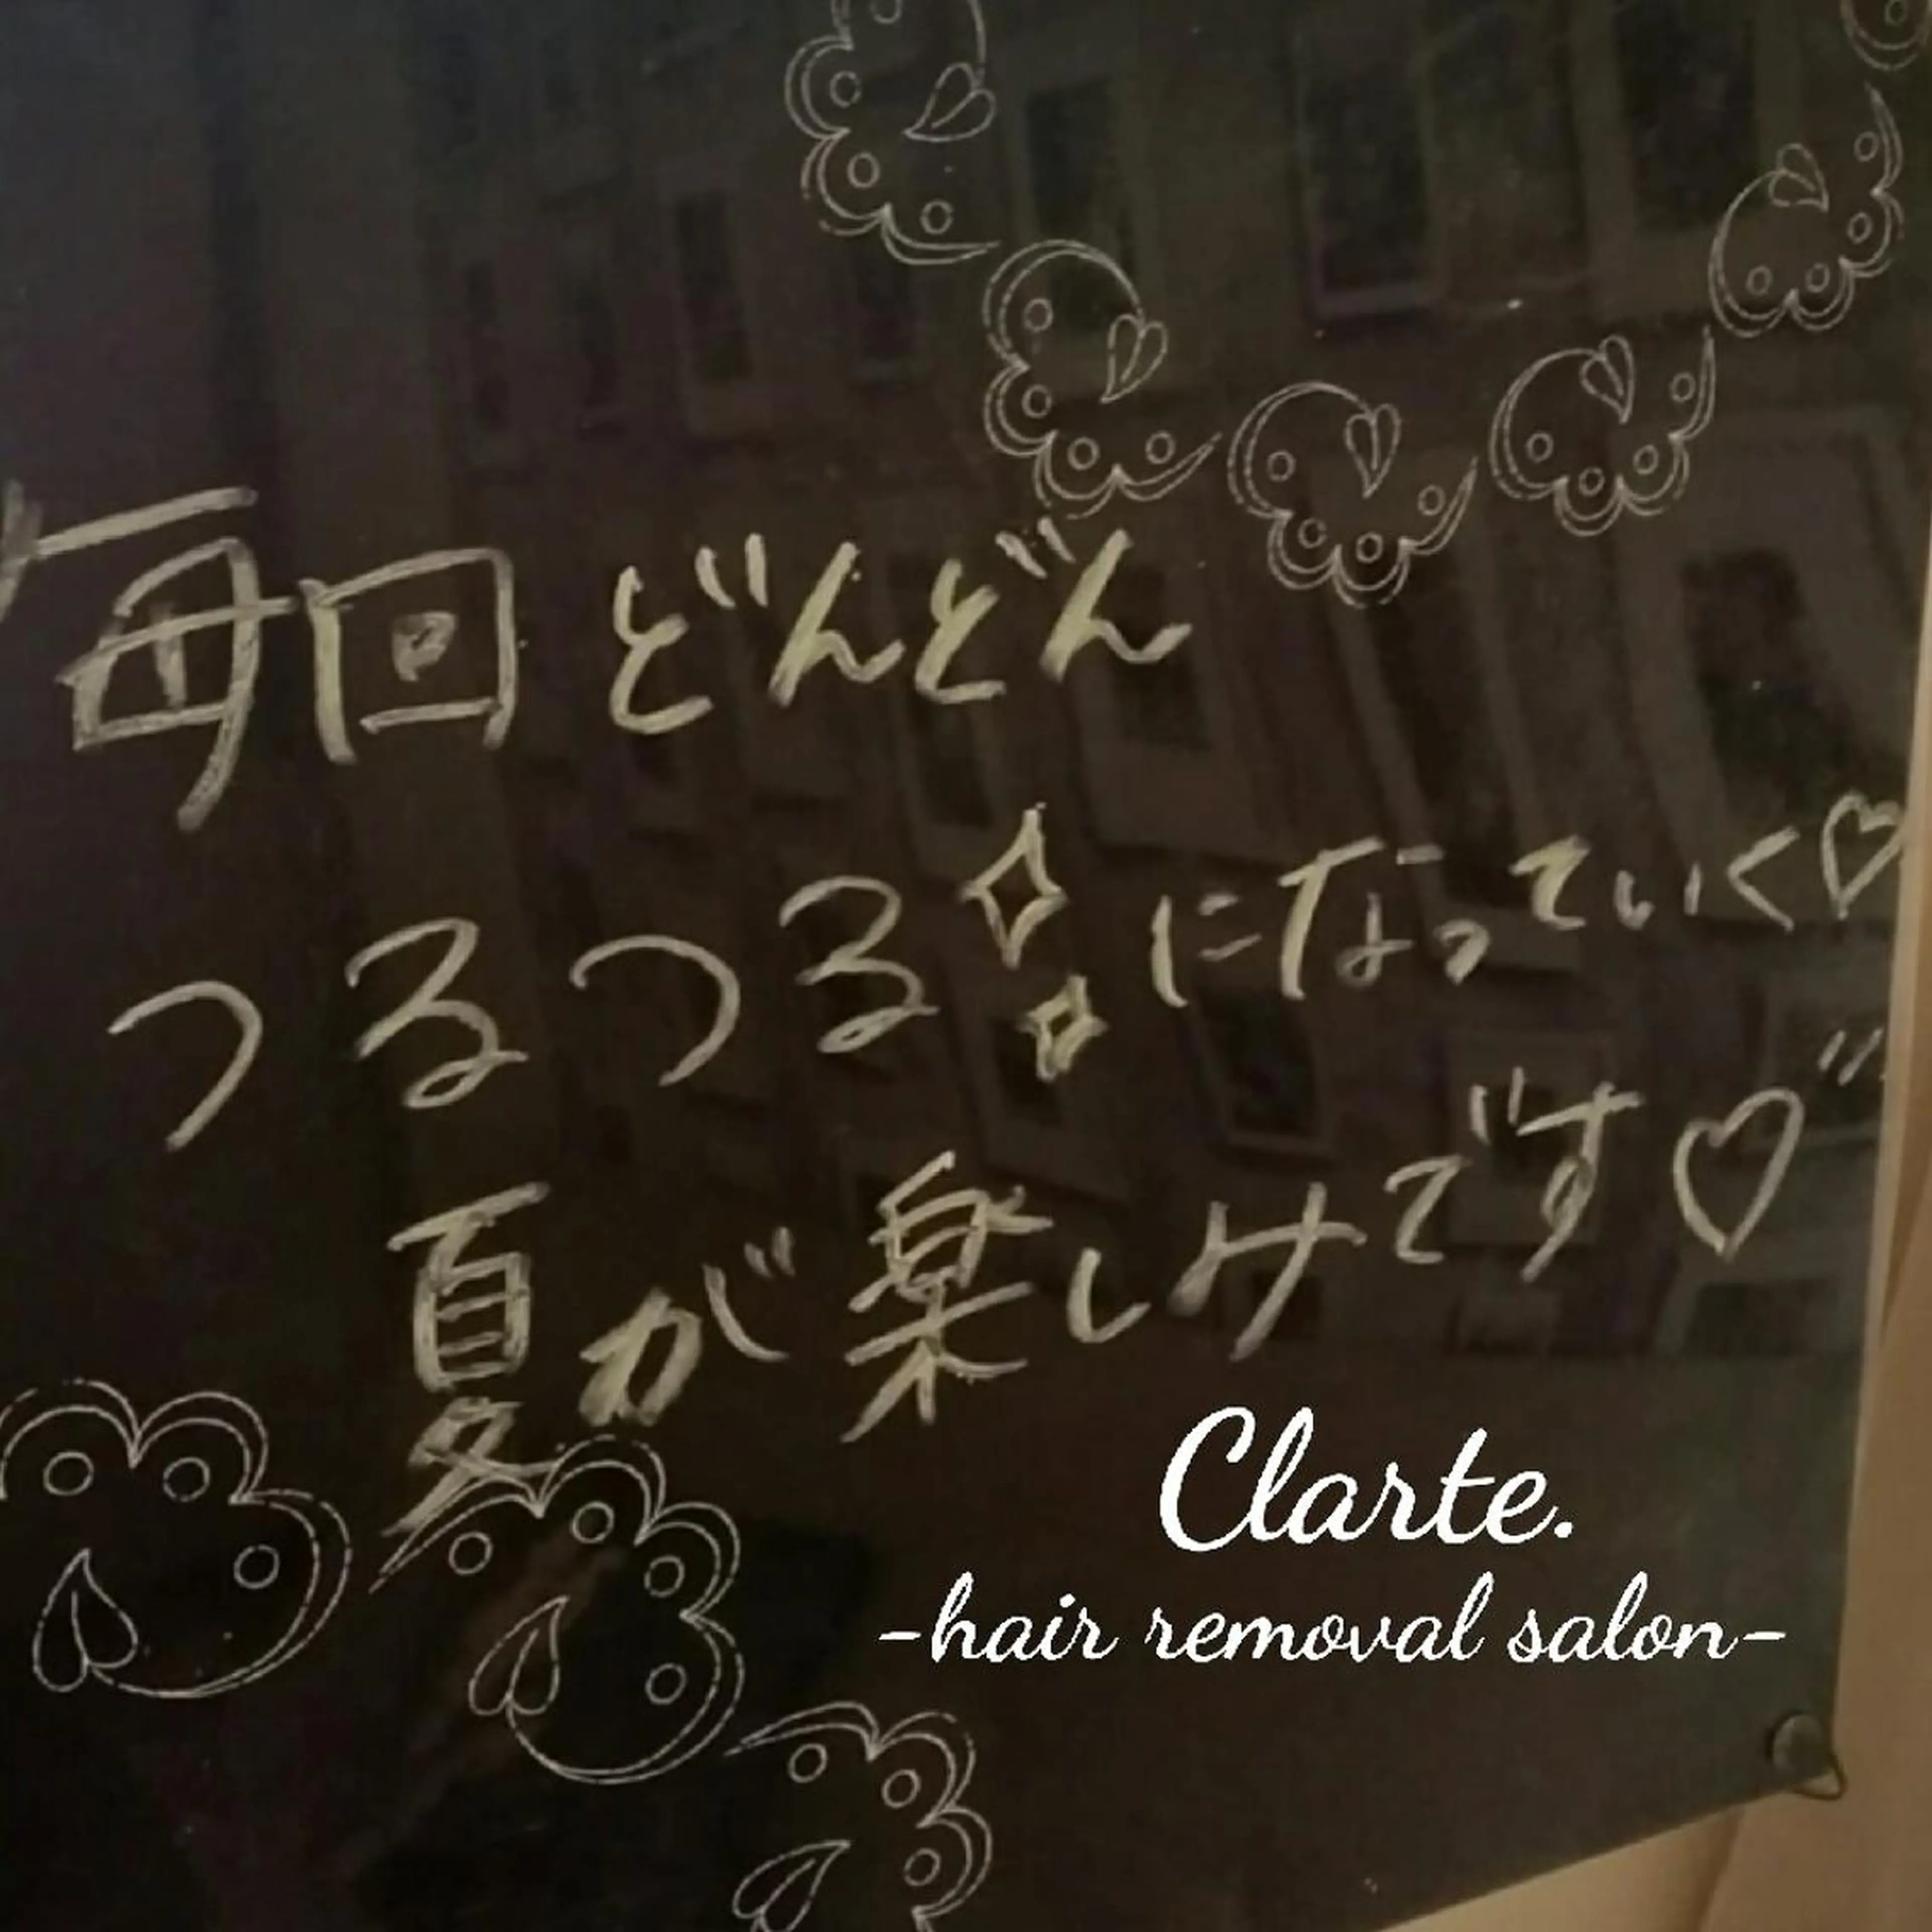 毎回どんどん
つるつる✧✧になっていく♡
夏が楽しみです♡"
Clarte.
-hair removal salon-